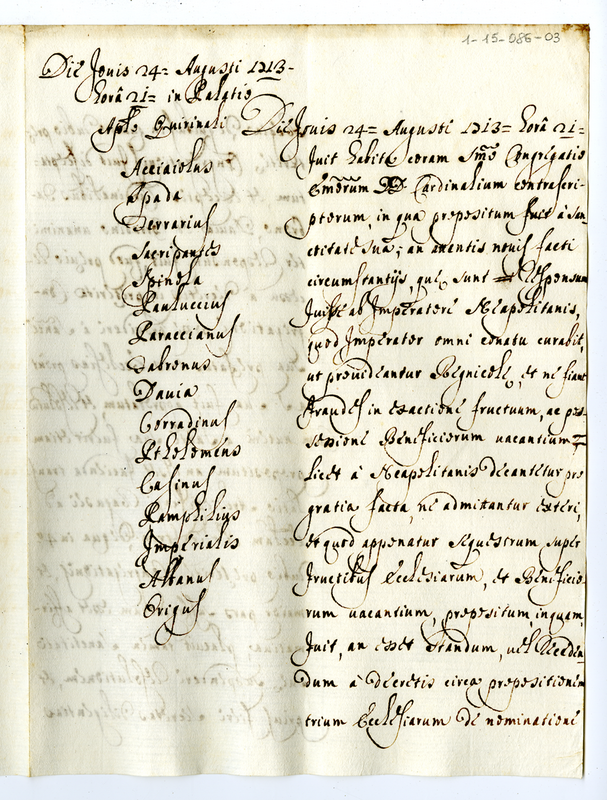 1-15-086-03
Die Jovis 24= Augusti 1713-
horâ 21= in Palatio
Aplo Quirinali
Acciaiolus
Spada
Ferrarius
Sacripantes
Spinola
Pauluccius
Paraccianus
Fabronus
Davia
Corradinus
Ptholomeus
Casinus
Pamphilius
Imperialis
Albanus
Origus
Die Jovis 24= Augusti 1713= horâ 21=
fuit habita coram Smo Congregatio
Emorum Cardinalium contrascri-
ptorum, in qua propositum fuit à San-
ctitate sua; an attentis novis facti
circumstantijs, quę sunt Responsum
fuisse ab Imperatore Neapolitanis,
quod Imperator omni conatu curabit,
ut provideantur Regnicolę, et ne fiant
fraudes in exactione fructuum, ac pos-
sessione Beneficiorum vacantium
licet à Neapolitanis dicantur pro
gratia facta, ne admittantur exteri,
et quod apponatur sequestrum super
fructibus Ecclesiarum, et Beneficio-
rum vacantium, propositum, inquam,
fuit, an esset standum, vel Receden-
dum à decretis circa propositionem
trium Ecclesiarum de nominatione